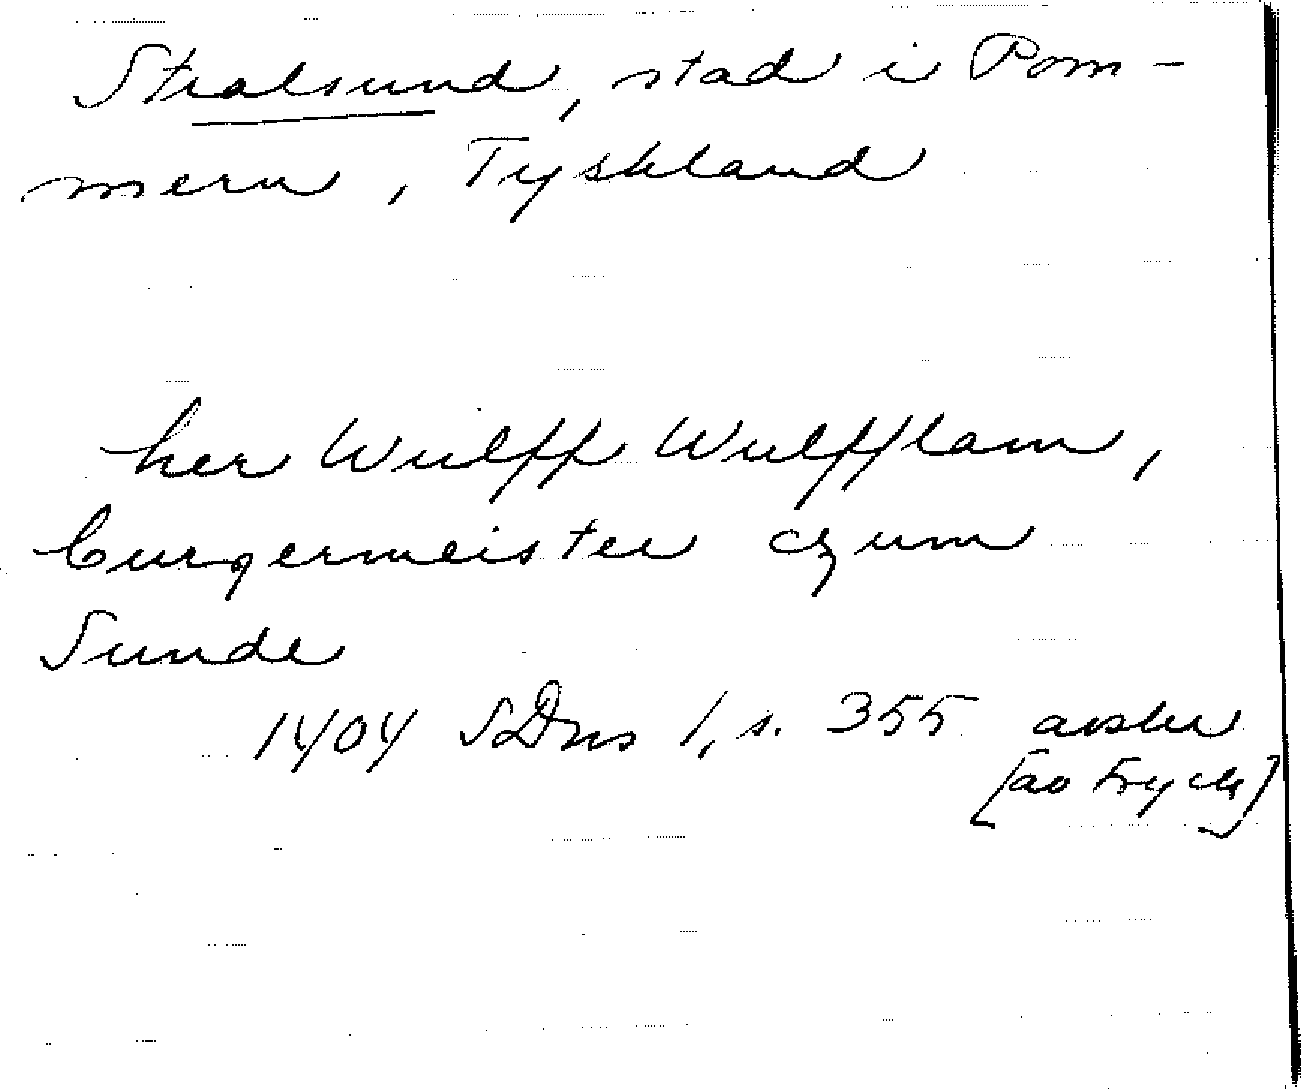 Stralsund, stad i Pom-
mern, Tyskland
her Wulff Wulfflam,
burgermeister czum
Sunde
1404 SDns 1, s. 355 avskr
[av tryck]